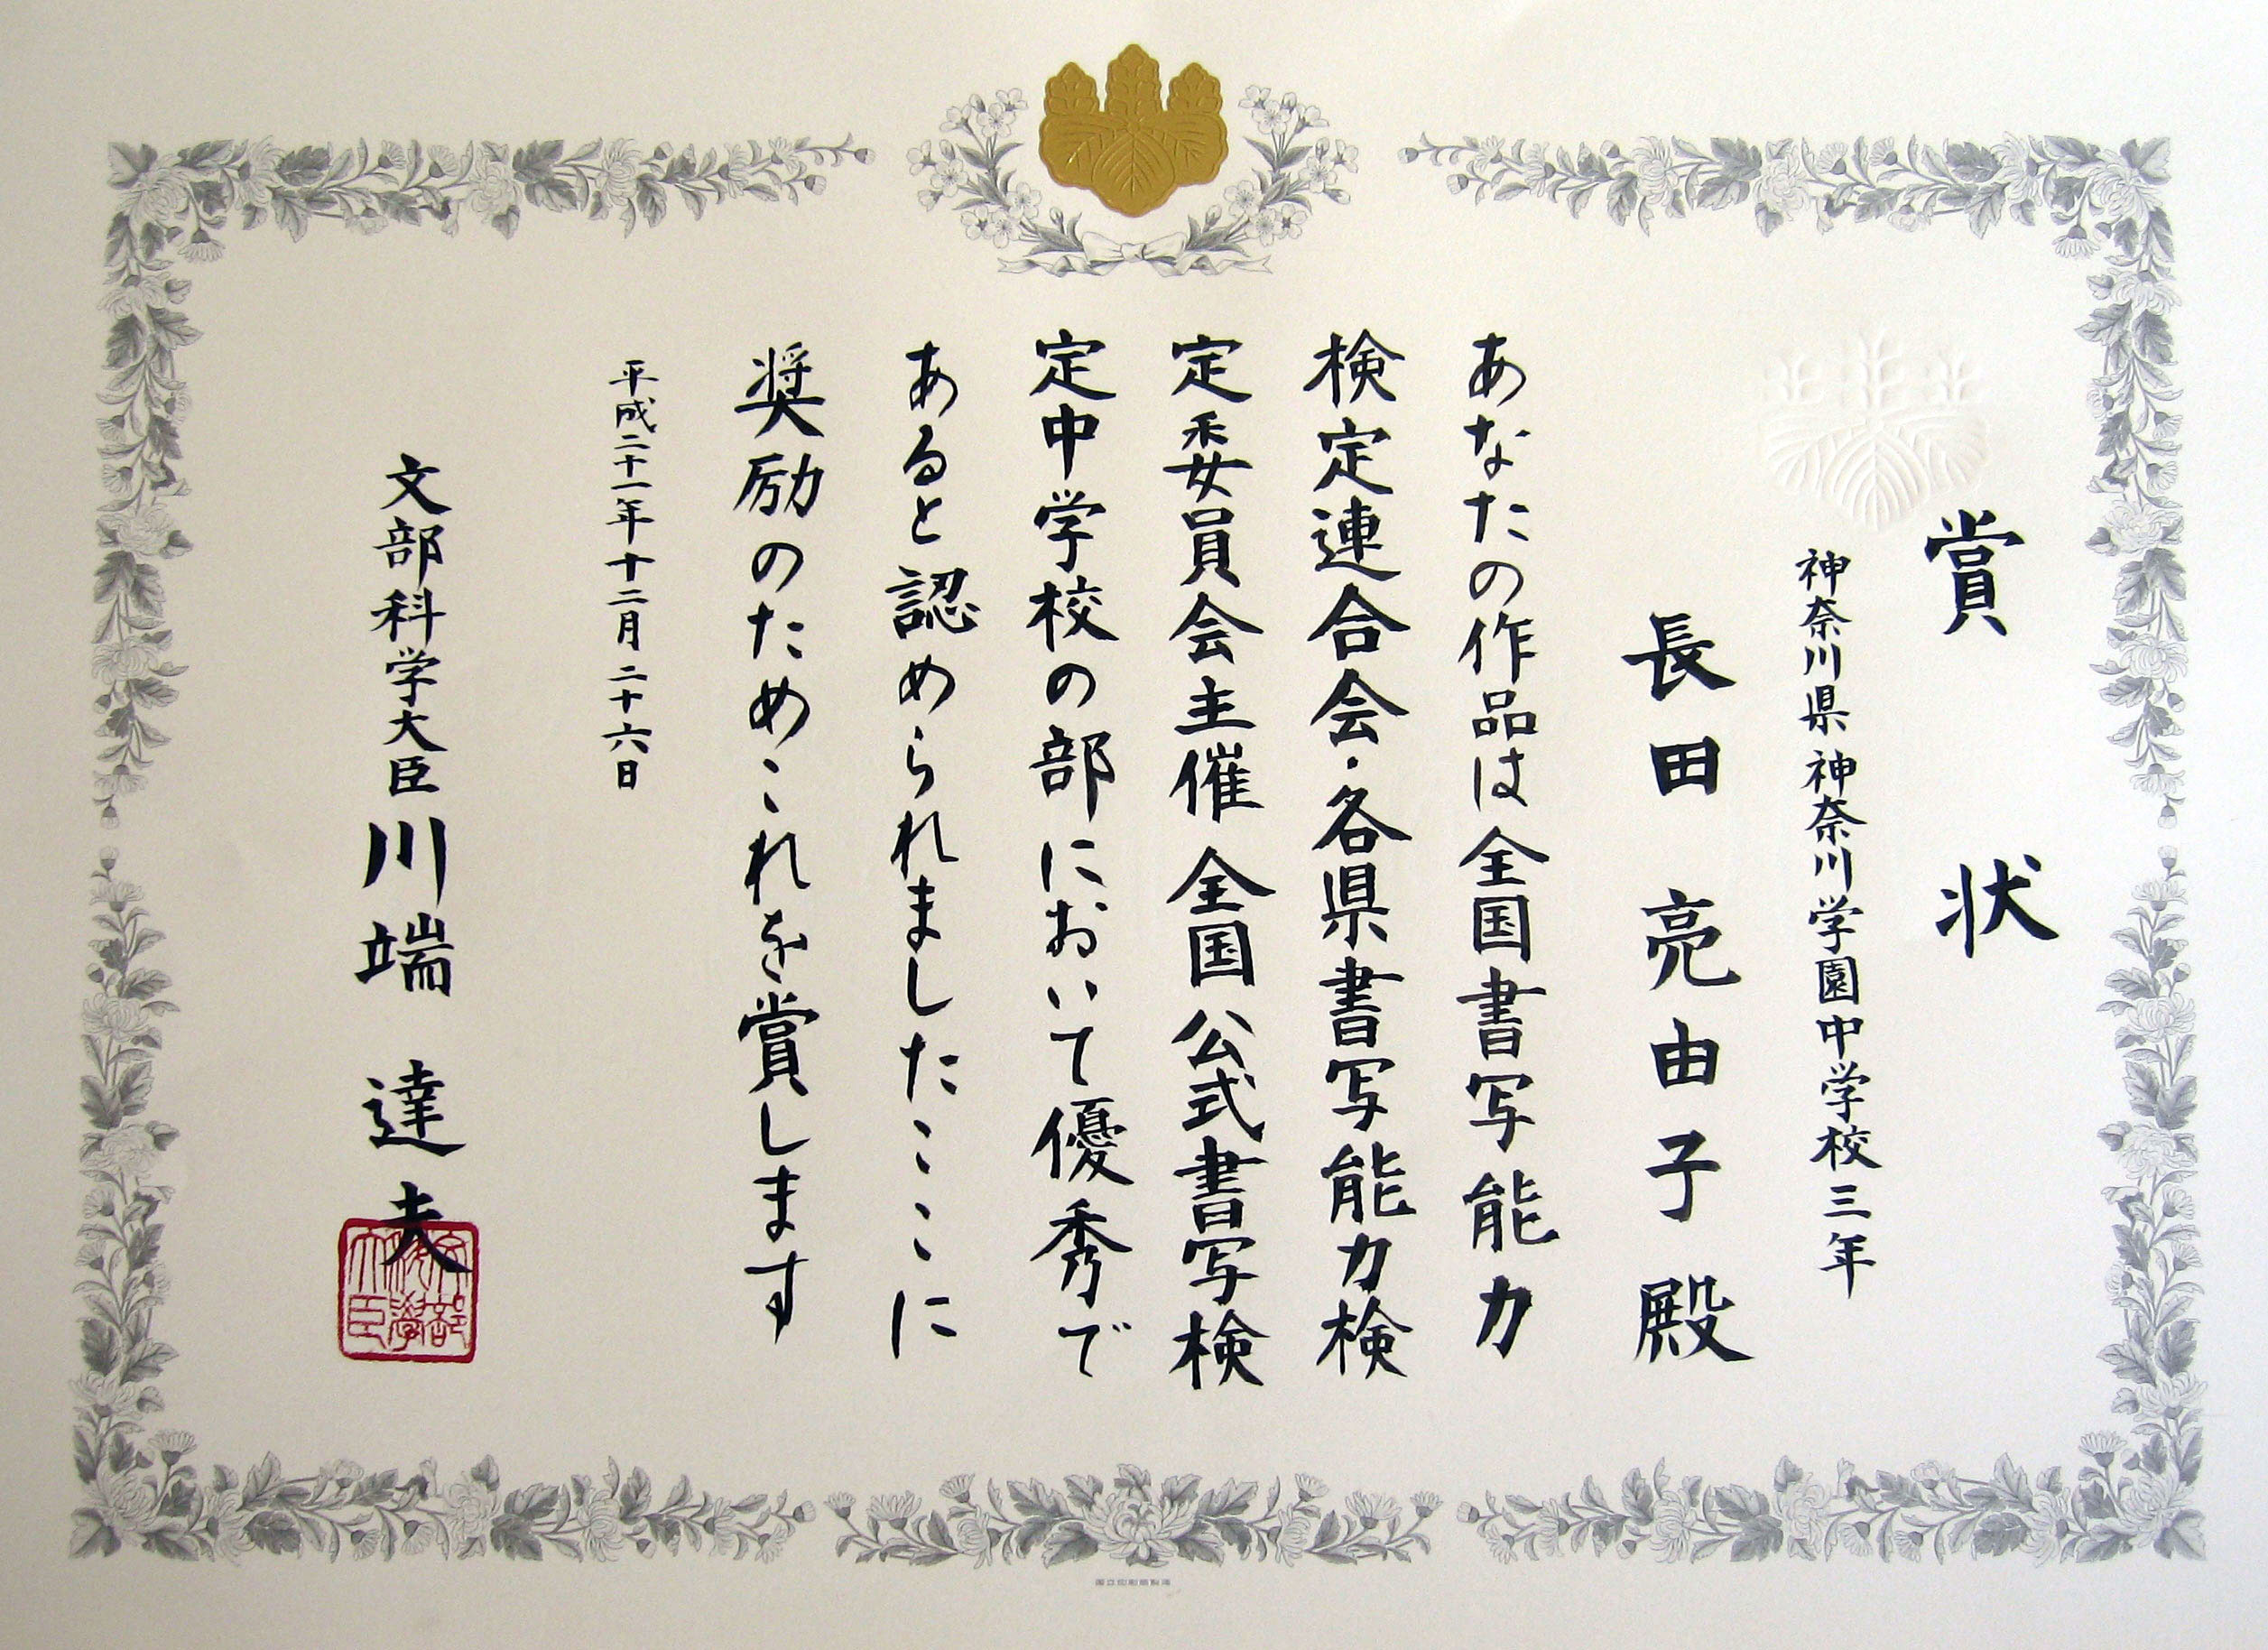 賞状
神奈川県神奈川学園中学校三年
長田亮由子殿
あなたの作品は全国書写能力
検定連合会・各県書写能力検
定委員会主催全国公式書写検
定中学校の部において優秀で
あると認められましたここに
奨励のためこれを賞します
平成二十一年十二月二十六日
文部科学大臣川端達夫
文部科學大臣